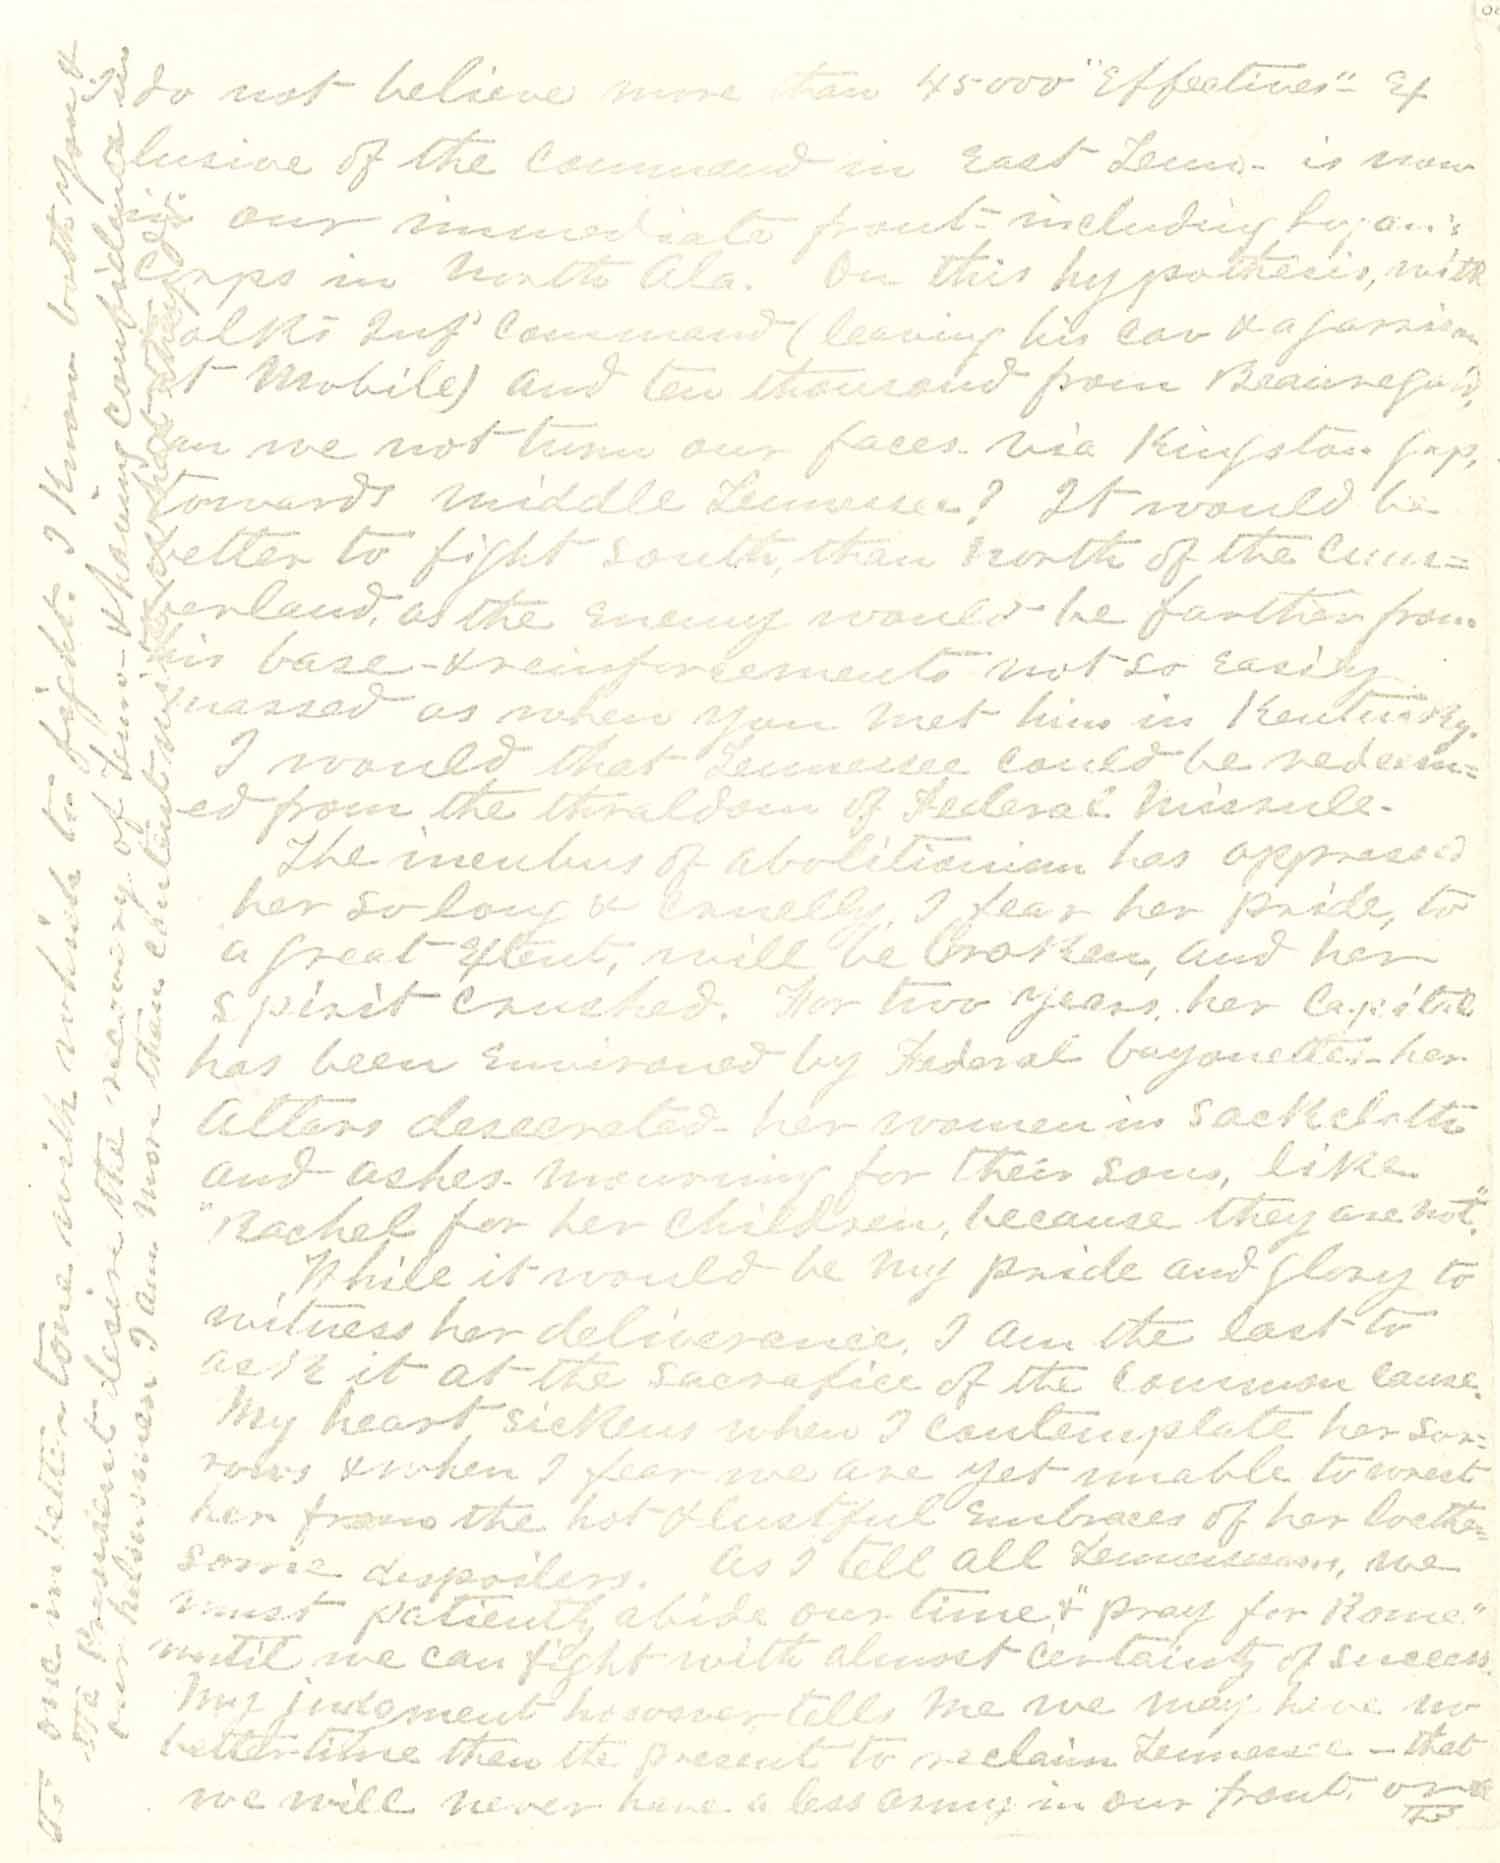 I do not believe more than 45000 "Effectives" - Ex
lusive of the Command in East Tenn - is now
in our immediate front - including Logan's
Corps in North Ala. On this hypothesis, with
olks Inf Command (leaving his cav & a garrison
at Mobile) and ten thousand from Beauregard,
an we not turn our faces via Kingston gap,
towards Middle Tennessee? It would be
better to fight South, than North of the Cum=
berland, as the Enemy would be farther from
his base - & reinforcements not so easily
massed as when you met him in Kentucky.
I would that Tennessee could be redeem=
ed from the thraldom of Federal Misrule -
The incubus of abolitionism has oppressed
her so long & cruelly, I fear her pride, to
a great Extent, will be broken, and her
spirit crushed. For two years, her Capitol
has been Environed by Federal bayonettes - her
Alters desecrated - her women in Sackcloth
and ashes - mourning for their sons, like
"Rachel for her children, because they are not".
While it would be my pride and glory to
witness her deliverance, I am the last to
ask it at the Sacrafice of the common cause.
My heart sickens when I contemplate her sor=
rows & when I fear we are yet unable to wrest
her from the hot & lustful Embraces of her loethe=
some despoilers. As I tell all Tennesseans, we
must patiently abide our time & "pray for Rome"
until we can fight with almost certainty of success.
My judgment however tells me we may have no
better time then the present to reclaim Tennessee - that
we will never have a less army in our front, or
to one in better tone with which to fight. I know both you &
the President desire the recovery of Tenn - & having confidence in
our helmsmen I am more than content with